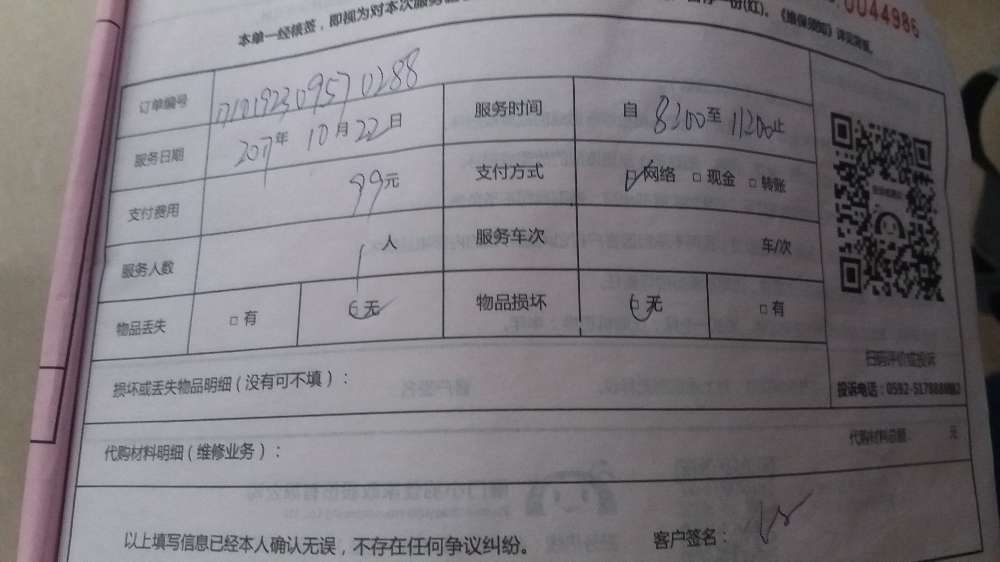 本单一经核签，即视为对本次服务
一份(红)。《维保须知》详见背面。
0044986
订单编号 1710192309570288
服务日期 2017年 10月22日 服务时间 自 8:00至 11:00止
支付费用 99元 支付方式 ☑网络 □现金 □转账
服务人数 1人 服务车次 车/次
物品丢失 □有 ☑无 物品损坏 ☑无 □有
扫码评价或投诉
损坏或丢失物品明细（没有可不填）：
投诉电话：0592-5178888
代购材料明细（维修业务）：
代购材料总额 元
以上填写信息已经本人确认无误，不存在任何争议纠纷。
客户签名：